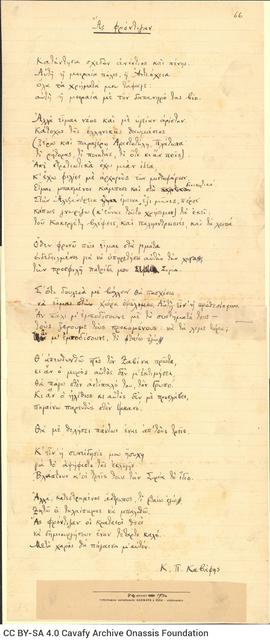 66
Ἂς φρόντιζαν
Κατήντησα σχεδὸν ἀνέστιος καὶ πένης.
Αὐτὴ ἡ μοιραία πόλις, ἡ Ἀντιόχεια
ὅλα τὰ χρήματά μου τἄφαγε:
αὐτὴ ἡ μοιραία μὲ τὸν δαπανηρό της βίο.
Ἀλλὰ εἶμαι νέος καὶ μὲ ὑγείαν ἀρίστην.
Κάτοχος τῆς ἑλληνικῆς θαυμάσιος
(ξέρω καὶ παραξέρω Ἀριστοτέλη, Πλάτωνα
τί ρήτορας, τί ποιητάς, τί ὅ,τι κι ἂν πεῖς).
Ἀπὸ στρατιωτικὰ ἔχω μιὰν ἰδέα
κ' ἔχω φιλίες μὲ ἀρχηγοὺς τῶν μισθοφόρων.
Εἶμαι μπασμένος κάμποσο καὶ στὰ διοικητικά.
Στὴν Ἀλεξάνδρεια ἔμεινα ἕξι μῆνες, πέρσι·
κάπως γνωρίζω (κ' εἶναι τοῦτο χρήσιμον) τὰ ἐκεῖ:
τοῦ Κακεργέτη βλέψεις, καὶ παληανθρωπιές, καὶ τὰ λοιπά.
Ὅθεν φρονῶ πὼς εἶμαι στὰ γεμάτα
ἐνδεδειγμένος γιὰ νὰ ὑπηρετήσω αὐτὴν τὴν χώρα,
τὴν προσφιλῆ πατρίδα μου Συρία.
Σ' ὅ,τι δουλειὰ μὲ βάλουν θὰ πασχίσω
νὰ εἶμαι στὴν χώρα ὠφέλιμος. Αὐτὴ εἶν' ἡ πρόθεσίς μου.
Ἂν πάλι μ' ἐμποδίσουνε μὲ τὰ συστήματά τους—
τοὺς ξέρουμε τοὺς προκομένους: νὰ τὰ λέμε τώρα;
ἂν μ' ἐμποδίσουνε, τί φταίω ἐγώ.
Θ' ἀπευθυνθῶ πρὸς τὸν Ζαβίνα πρῶτα,
κι ἂν ὁ μωρὸς αὐτὸς δὲν μ' ἐκτιμήσει,
θὰ πάγω στὸν ἀντίπαλό του, τὸν Γρυπό.
Κι ἂν ὁ ἠλίθιος κι αὐτὸς δὲν μὲ προσλάβει,
πηγαίνω παρευθὺς στὸν Ὑρκανό.
Θὰ μὲ θελήσει πάντως ἕνας ἀπ' τοὺς τρεῖς.
Κ' εἶν' ἡ συνείδησίς μου ἥσυχη
γιὰ τὸ ἀψήφιστο τῆς ἐκλογῆς.
Βλάπτουν κ' οἱ τρεῖς τους τὴν Συρία τὸ ἴδιο.
Ἀλλά, κατεστραμένος ἄνθρωπος, τί φταίω ἐγώ.
Ζητῶ ὁ ταλαίπωρος νὰ μπαλωθῶ.
Ἂς φρόντιζαν οἱ κραταιοὶ θεοὶ
νὰ δημιουργήσουν ἕναν τέταρτο καλό.
Μετὰ χαρᾶς θὰ πήγαινα μ' αὐτόν.
Κ. Π. Καβάφης
CC BY-SA 4.0 Cavafy Archive Onassis Foundation